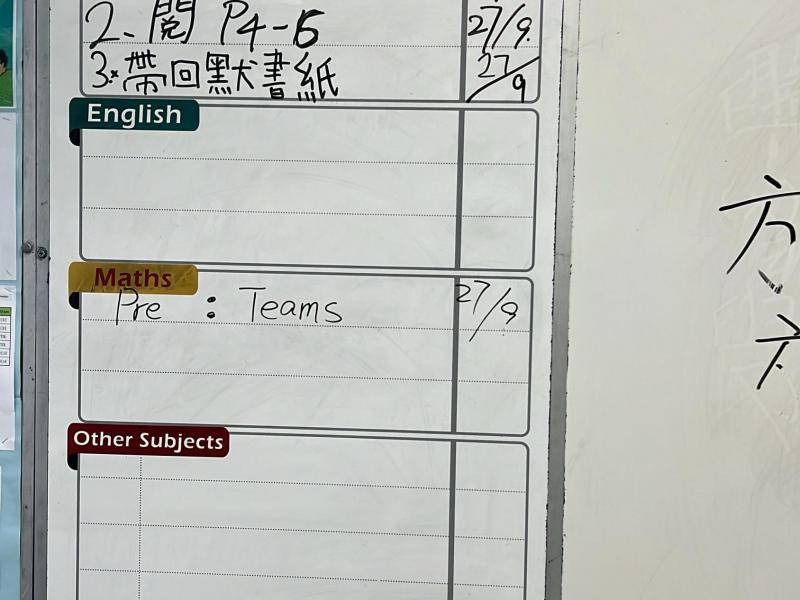 2. 閱 P4-5 27/9
3. 帶回默書紙 27/9
English
Maths
Pre : Teams 27/9
Other Subjects
方